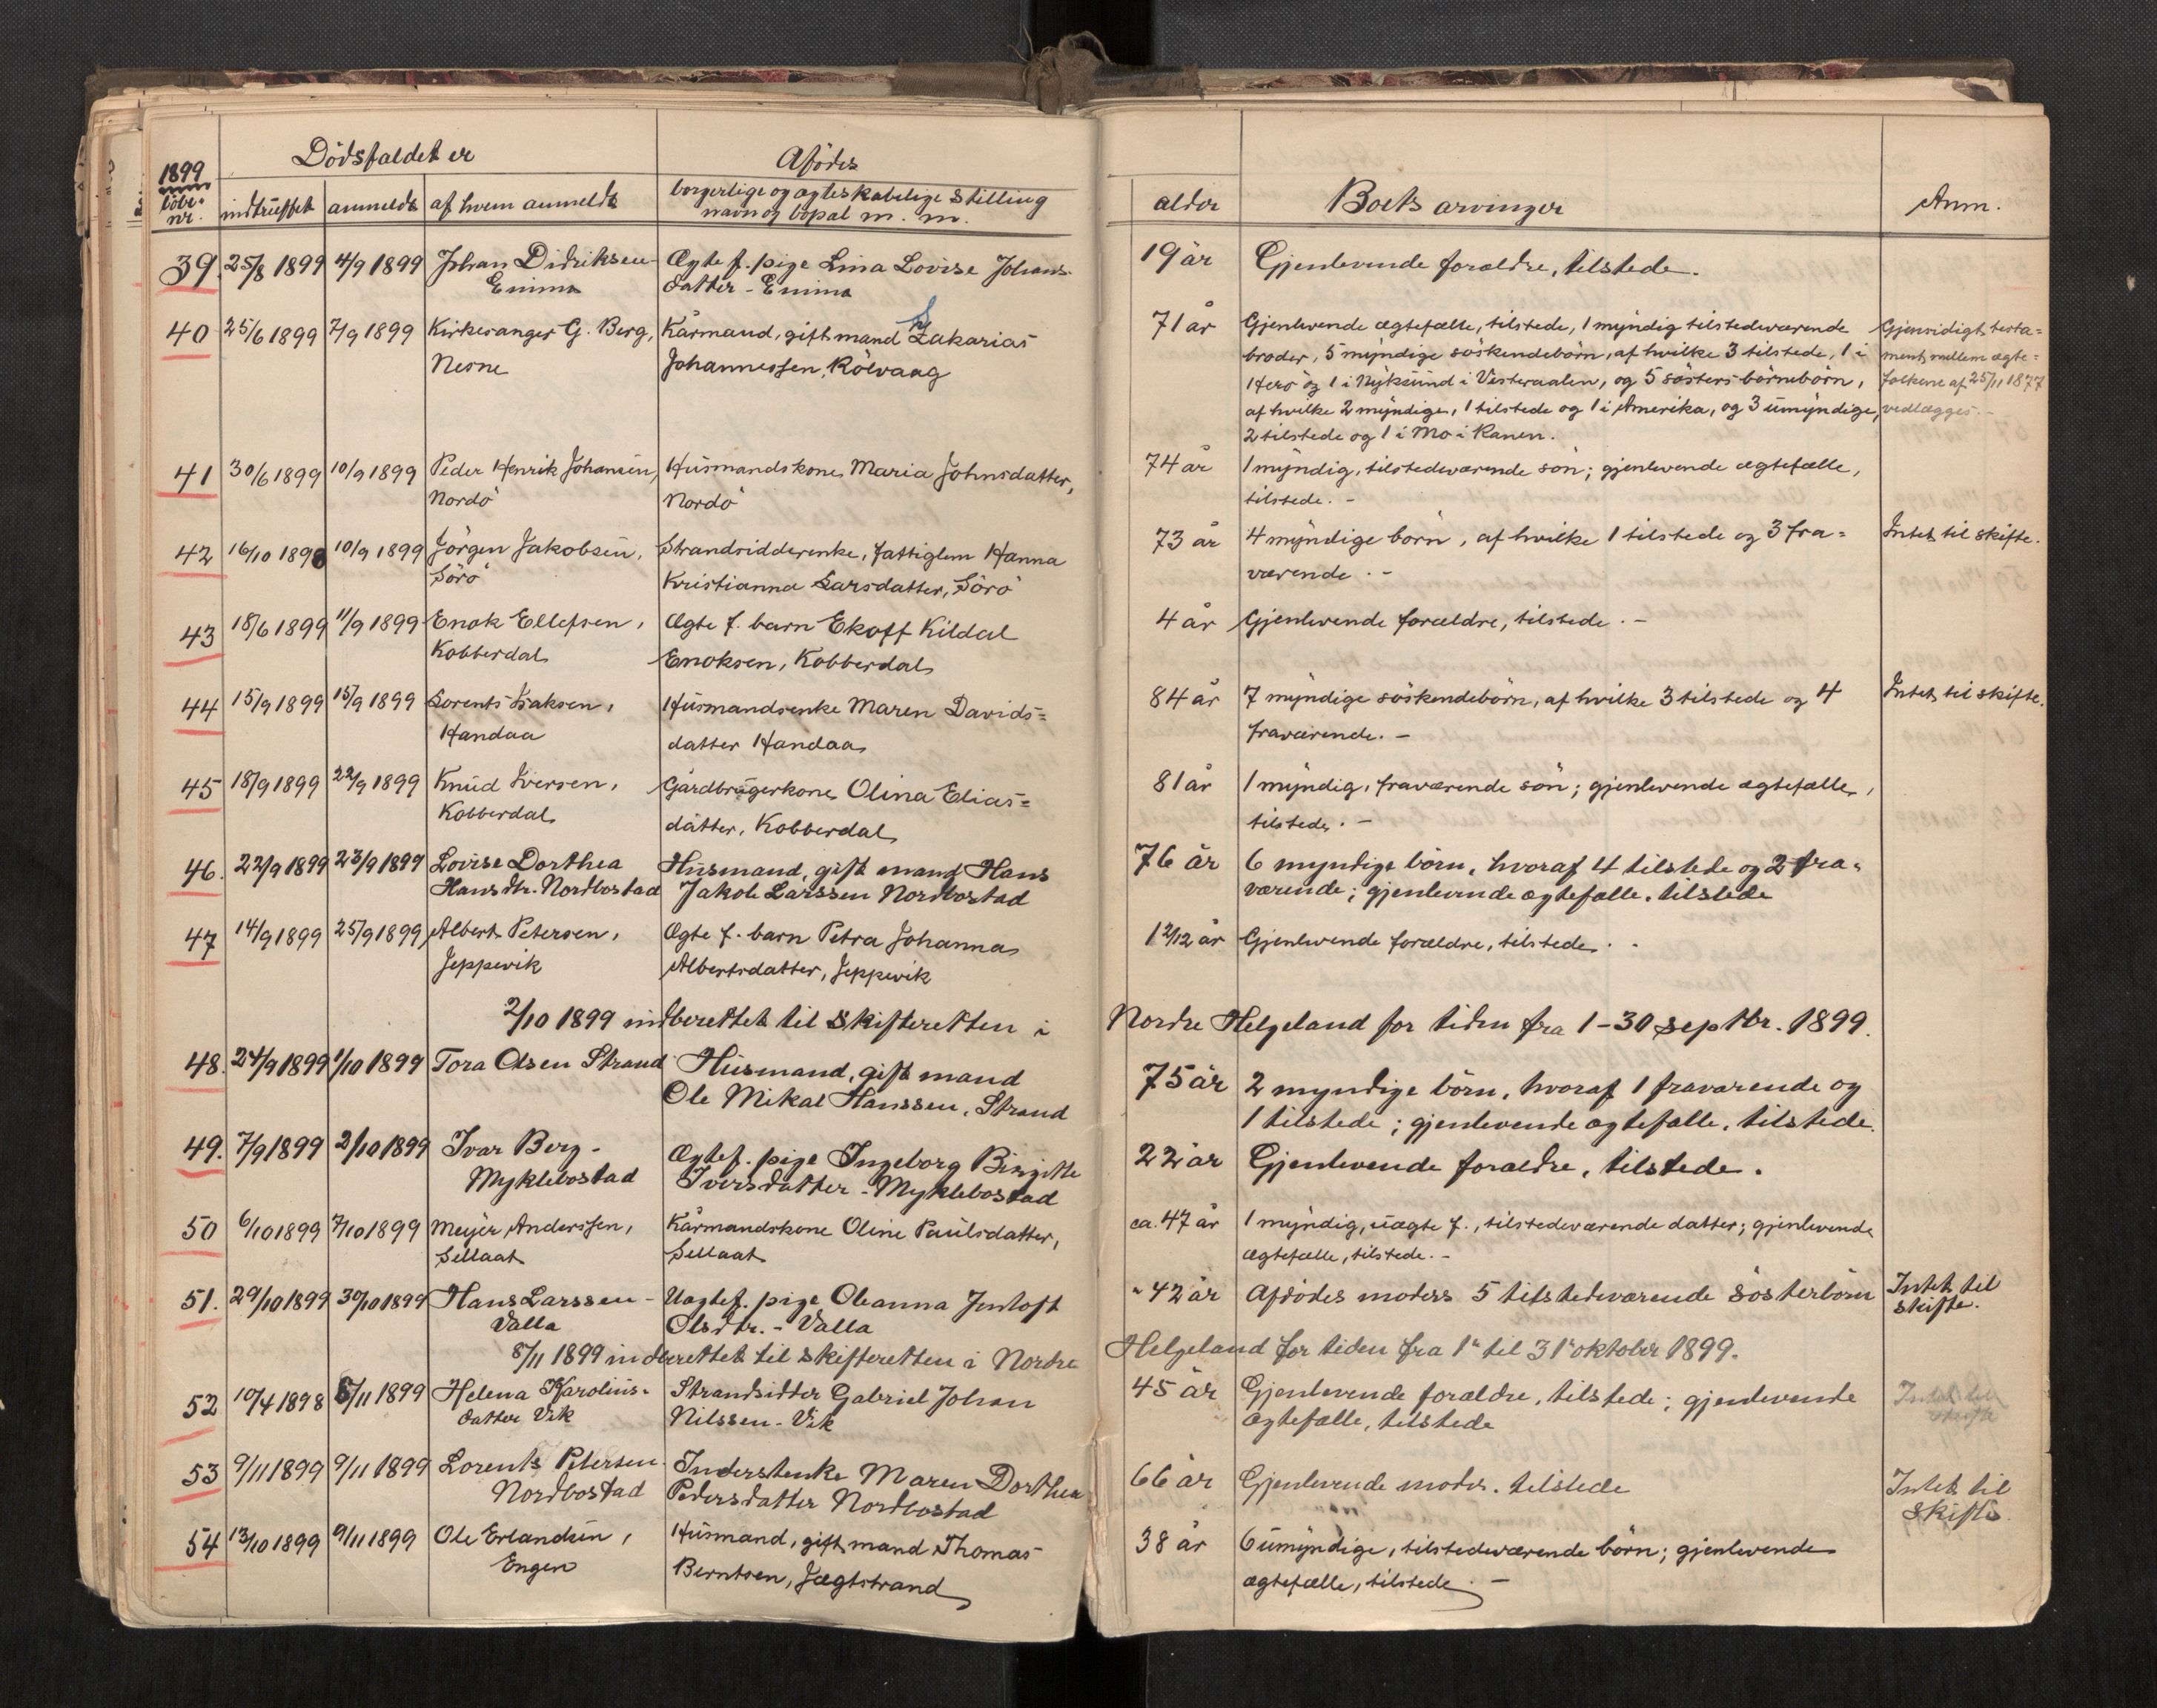 1899
Dödsfaldet er
Afödes
löbe-
nr.
indtruffet anmeldt af hvem anmeldt
borgerlige og ægteskabelige stilling
navn og bopæl m. m.
alder
Boets arvinger
Anm.
39. 25/8 1899 4/9 1899 Johan Didriksen- Ægte f. pige Lina Lovise Johans- 19 år Gjenlevende forældre, tilstede.
datter - Emma
40 25/6 1899 7/9 1899 Kirkesanger G. Berg, Kårmand, gift mand Zakarias 71 år Gjenlevende ægtefælle, tilstede, 1 myndig tilstedeværende Gjensidigt testa=
Nesne Johannessen, Rölvaag broder, 5 myndige söskendebörn, af hvilke 3 tilstede, 1 i ment mellem ægte=
Herö og 1 i Nyksund i Vesteraalen, og 5 sösters börnebörn, folkene af 25/11 1877
af hvilke 2 myndige, 1 tilstede og 1 i Amerika, og 3 umyndige, vedlægges.-
2 tilstede og 1 i Mo i Ranen.
41 30/6 1899 10/9 1899 Peder Henrik Johansen, Husmandskone Maria Johnsdatter, 74 år 1 myndig, tilstedeværende sön; gjenlevende ægtefælle,
Nordö Nordö tilstede. -
42 16/10 1898 10/9 1899 Jörgen Jakobsen, Strandsidderenke, fattiglem Hanna 73 år 4 myndige börn, af hvilke 1 tilstede og 3 fra= Intet til skifte.
Sörö Kristianna Larsdatter, Sörö værende. -
43 18/6 1899 11/9 1899 Enok Ellefsen, Ægte f. barn Ekoff Kildal 4 år Gjenlevende forældre, tilstede. -
Kobberdal Enoksen, Kobberdal
44 15/9 1899 15/9 1899 Lorents Isaksen, Husmandsenke Maren Davids= 84 år 7 myndige söskendebörn, af hvilke 3 tilstede og 4 Intet til skifte.
Handaa datter Handaa fraværende. -
45 18/9 1899 22/9 1899 Knud Iversen, Gårdbrugerkone Olina Elias= 81 år 1 myndig, fraværende sön; gjenlevende ægtefælle,
Kobberdal datter, Kobberdal tilstede. -
46. 22/9 1899 23/9 1899 Lovise Dorthea Husmand, gift mand Hans 76 år 6 myndige börn, hvoraf 4 tilstede og 2 fra=
Hansdtr. Nordbostad Jakob Larssen Nordbostad værende; gjenlevende ægtefælle, tilstede
47 14/9 1899 25/9 1899 Albert Petersen, Ægte f. barn Petra Johanna 1 2/12 år Gjenlevende forældre, tilstede. -
Jeppevik Albertsdatter, Jeppevik
2/10 1899 indberettet til skifteretten i Nordre Helgeland for tiden fra 1-30 septbr. 1899.
48. 24/9 1899 1/10 1899 Tora Olsen Strand Husmand, gift mand 75 år 2 myndige börn, hvoraf 1 fraværende og
Ole Mikal Hanssen, Strand 1 tilstede; gjenlevende ægtefælle, tilstede.
49. 7/9 1899 2/10 1899 Ivar Berg - Ægtef. pige Ingeborg Birgitte 22 år Gjenlevende forældre, tilstede.
Myklebostad Iversdatter - Myklebostad
50 6/10 1899 7/10 1899 Meyer Anderssen, Kårmandskone Oline Paulsdatter, ca. 47 år 1 myndig, uægte f., tilstedeværende datter; gjenlevende
Sellaat Sellaat ægtefælle, tilstede. -
51. 29/10 1899 30/10 1899 Hans Larssen - Uægtef. pige Oleanna Jentoft " 42 år Afdödes moders 5 tilstedeværende sösterbörn Intet til
Valla Olsdtr. - Valla skifte.
8/11 1899 indberettet til skifteretten i Nordre Helgeland for tiden fra 1" til 31" oktober 1899.
52 10/4 1898 8/11 1899 Helena Karolius- Strandsidder Gabriel Johan 45 år Gjenlevende forældre, tilstede; gjenlevende Intet til
datter Vik Nilssen - Vik ægtefælle, tilstede skifte
53 9/11 1899 9/11 1899 Lorents Petersen- Inderstenke Maren Dorthea 66 år Gjenlevende moder. tilstede Intet til
Nordbostad Pedersdatter Nordbostad skifte
54 13/10 1899 9/11 1899 Ole Erlandsen, Husmand, gift mand Thomas 38 år 6 umyndige, tilstedeværende börn; gjenlevende
Engen Berntsen, Jægtstrand ægtefælle, tilstede. -